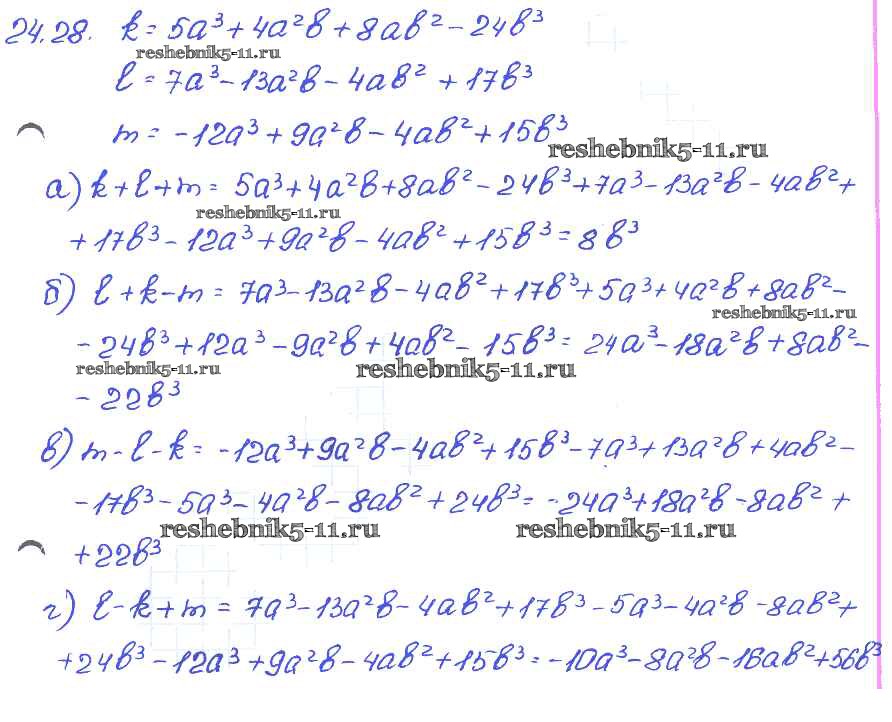 24.28. k = 5a³ + 4a²b + 8ab² - 24b³
reshebnik5-11.ru
l = 7a³ - 13a²b - 4ab² + 17b³
m = -12a³ + 9a²b - 4ab² + 15b³
reshebnik5-11.ru
а) k + l + m = 5a³ + 4a²b + 8ab² - 24b³ + 7a³ - 13a²b - 4ab² +
reshebnik5-11.ru
+ 17b³ - 12a³ + 9a²b - 4ab² + 15b³ = 8b³
б) l + k - m = 7a³ - 13a²b - 4ab² + 17b³ + 5a³ + 4a²b + 8ab² -
reshebnik5-11.ru
- 24b³ + 12a³ - 9a²b + 4ab² - 15b³ = 24a³ - 18a²b + 8ab² -
reshebnik5-11.ru reshebnik5-11.ru
- 22b³
в) m - l - k = -12a³ + 9a²b - 4ab² + 15b³ - 7a³ + 13a²b + 4ab² -
- 17b³ - 5a³ - 4a²b - 8ab² + 24b³ = -24a³ + 18a²b - 8ab² +
reshebnik5-11.ru reshebnik5-11.ru
+ 22b³
г) l - k + m = 7a³ - 13a²b - 4ab² + 17b³ - 5a³ - 4a²b - 8ab² +
+ 24b³ - 12a³ + 9a²b - 4ab² + 15b³ = -10a³ - 8a²b - 16ab² + 56b³